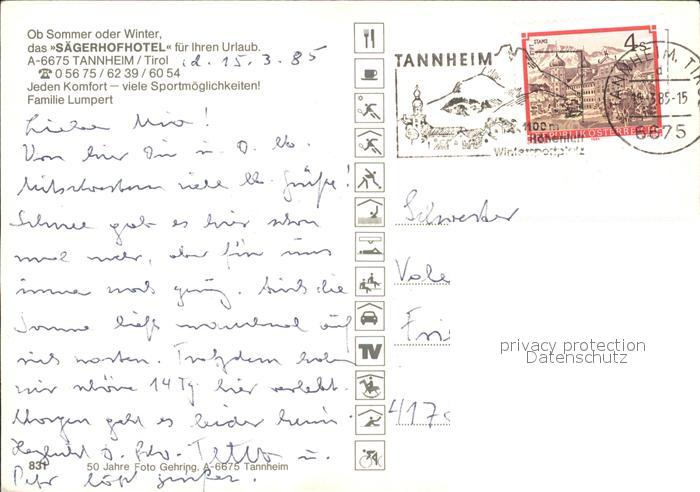 Ob Sommer oder Winter,
das »SÄGERHOFHOTEL« für Ihren Urlaub.
A-6675 TANNHEIM / Tirol d. 15.3.85
☎ 0 56 75 / 62 39 / 60 54
Jeden Komfort — viele Sportmöglichkeiten!
Familie Lumpert
TANNHEIM
1100 m
Höhenluft
Wintersportplatz
STIFT STAMS
4 S
REPUBLIK ÖSTERREICH
TANNHEIM, TIROL
14.3.85-15
6675
Liebe
Von hier Dir u. D. lb.
Mitschwestern viele lb. Grüße!
Schnee gab es hier schon
mal mehr, aber für uns
immer noch genug. die
Sonne ließ manchmal auf
sich warten. Trotzdem haben
wir schöne 14 Tg. hier verlebt.
Morgen geht es leider heim.
u.
Schwester
TV
privacy protection
Datenschutz
417
831 50 Jahre Foto Gehring, A-6675 Tannheim
Petr läßt grüßen.